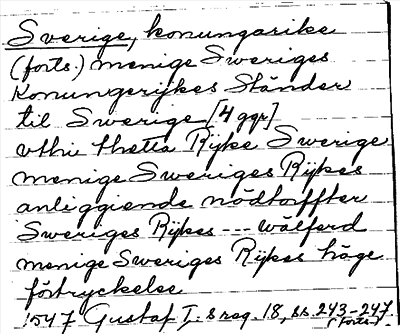 Sverige, konungarike
(forts.) menige Sweriges
Konungerijkes Ständer
til Swerige [4 ggr]
vthi thetta Rijke Swerige
menige Sweriges Rijkes
anliggiende nödtorffter
Sweriges Rijkes --- wälferd
menige Sweriges Rijkes höge
förtryckelse
1547 Gustaf I:s reg. 18, ss. 243-247.
(forts.)